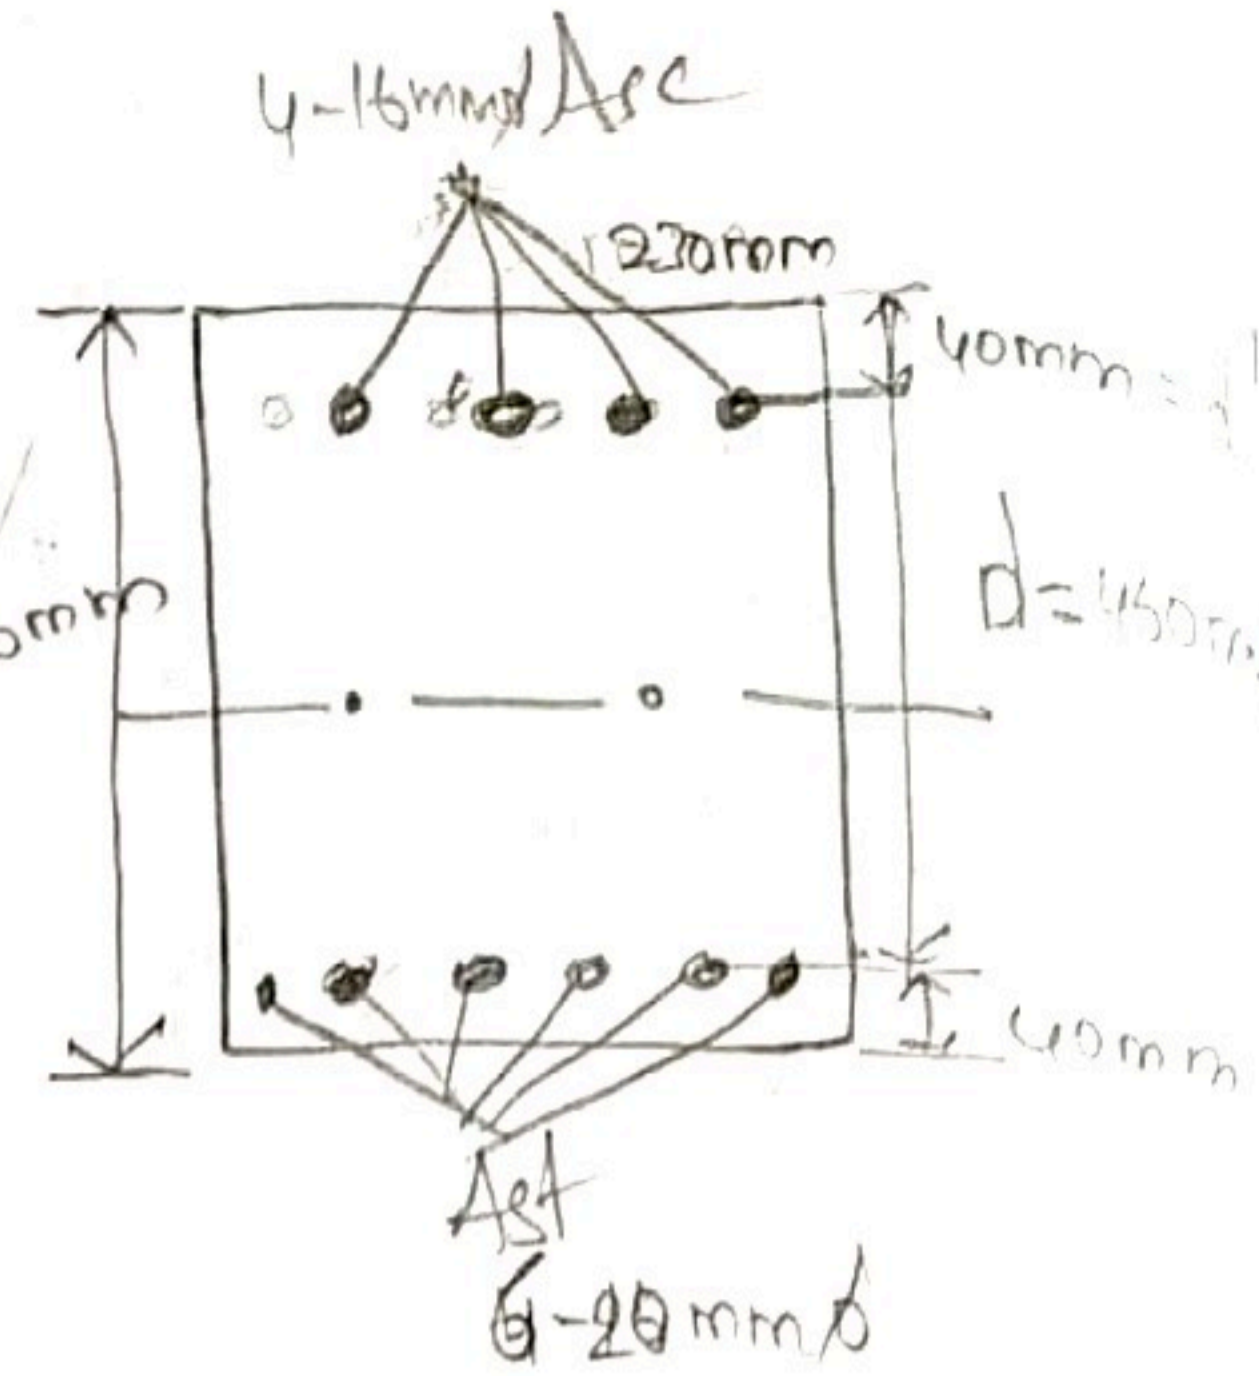 4-16mmø Asc
230mm
40mm
mm
d=450m
40mm
Ast
6-20mmø